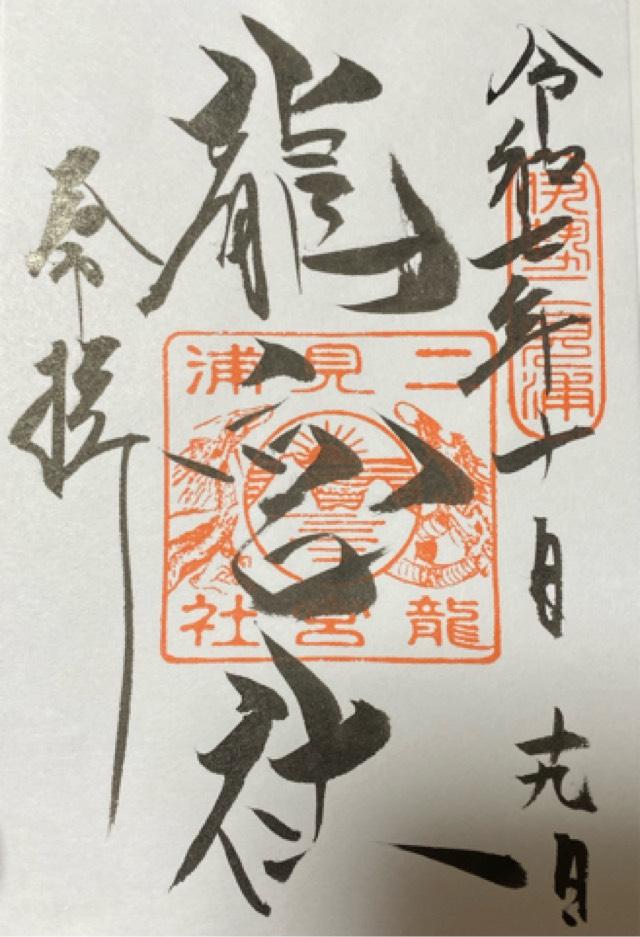 令和七年十月十九日
伊勢二見浦
龍宮社
二見浦
龍宮社
奉拝